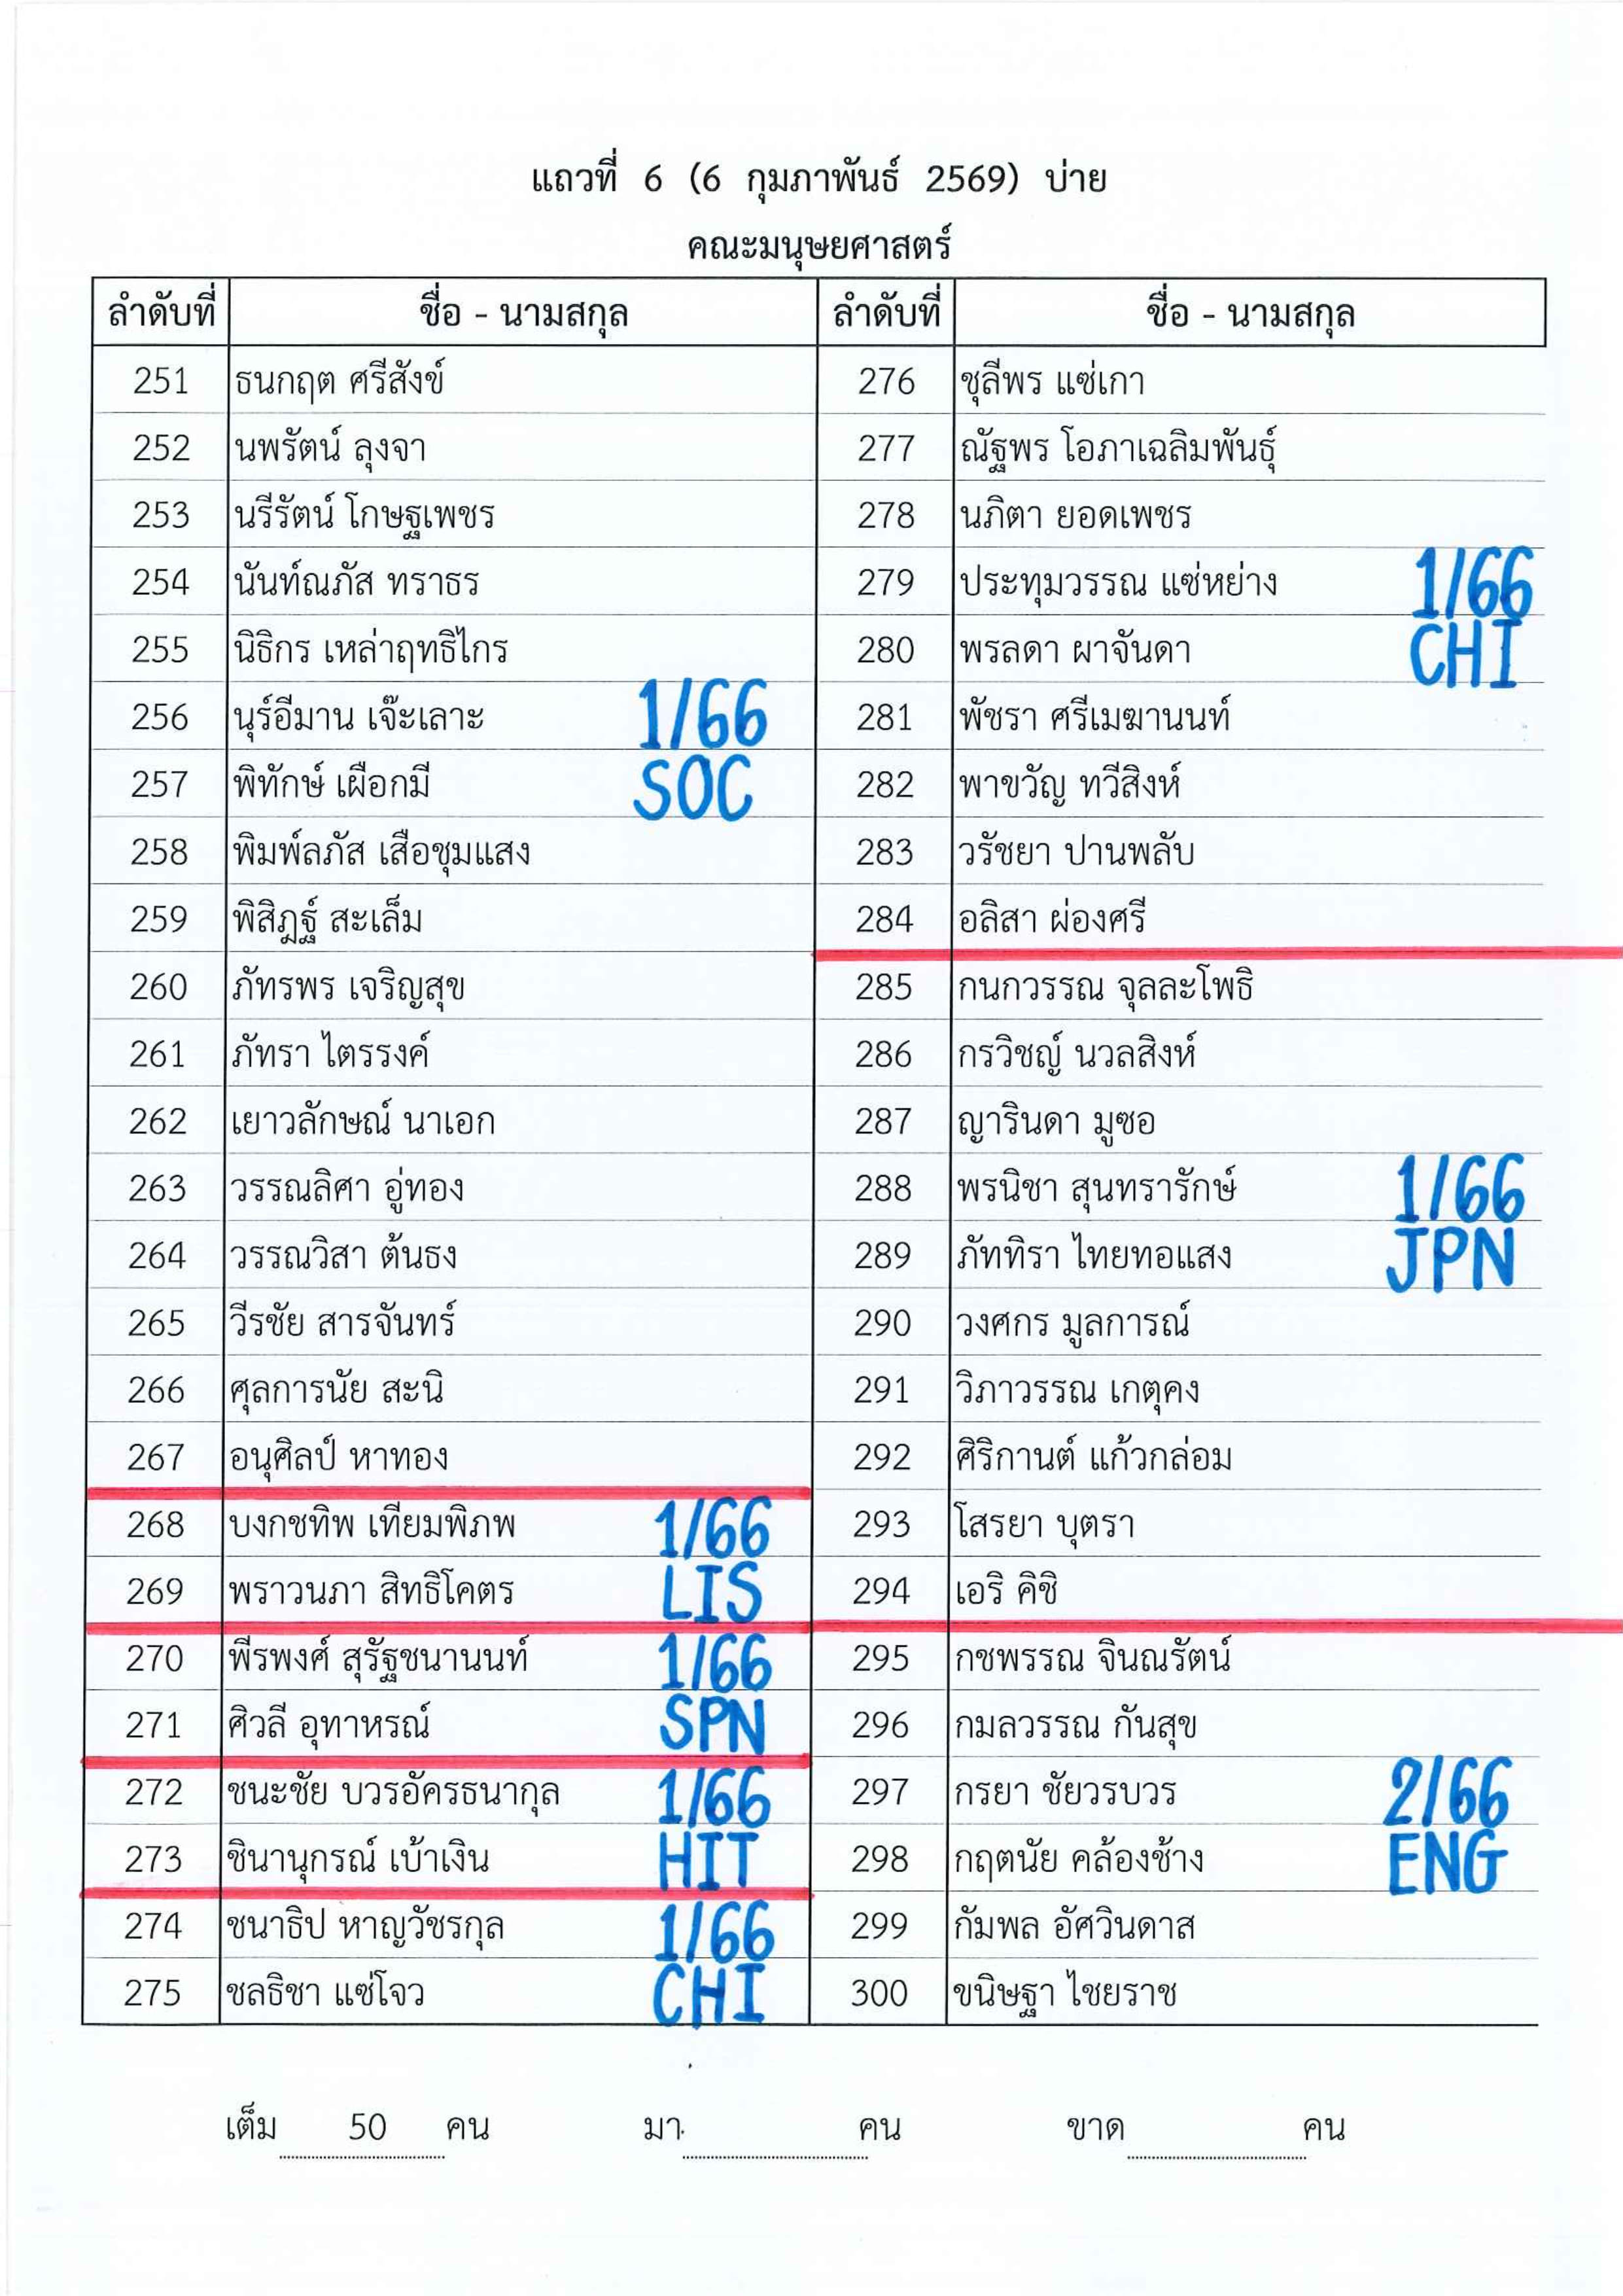 แถวที่ 6 (6 กุมภาพันธ์ 2569) บ่าย
คณะมนุษยศาสตร์
ลำดับที่ ชื่อ - นามสกุล ลำดับที่ ชื่อ - นามสกุล
251 ธนกฤต ศรีสังข์ 276 ชุลีพร แซ่เกา
252 นพรัตน์ ลุงจา 277 ณัฐพร โอภาเฉลิมพันธุ์
253 นรีรัตน์ โกษฐเพชร 278 นภิตา ยอดเพชร
254 นันท์ณภัส ทราธร 279 ประทุมวรรณ แซ่หย่าง 1/66
255 นิธิกร เหล่าฤทธิไกร 280 พรลดา ผาจันดา CHI
256 นุร์อีมาน เจ๊ะเลาะ 1/66 281 พัชรา ศรีเมฆานนท์
257 พิทักษ์ เผือกมี SOC 282 พาขวัญ ทวีสิงห์
258 พิมพ์ลภัส เสือชุมแสง 283 วรัชยา ปานพลับ
259 พิสิฎฐ์ สะเล็ม 284 อลิสา ผ่องศรี
260 ภัทรพร เจริญสุข 285 กนกวรรณ จุลละโพธิ
261 ภัทรา ไตรรงค์ 286 กรวิชญ์ นวลสิงห์
262 เยาวลักษณ์ นาเอก 287 ญารินดา มูซอ
263 วรรณลิศา อู่ทอง 288 พรนิชา สุนทรารักษ์ 1/66
264 วรรณวิสา ต้นธง 289 ภัททิรา ไทยทอแสง JPN
265 วีรชัย สารจันทร์ 290 วงศกร มูลการณ์
266 ศุลการนัย สะนิ 291 วิภาวรรณ เกตุคง
267 อนุศิลป์ หาทอง 292 ศิริกานต์ แก้วกล่อม
268 บงกชทิพ เทียมพิภพ 1/66 293 โสรยา บุตรา
269 พราวนภา สิทธิโคตร LIS 294 เอริ คิชิ
270 พีรพงศ์ สุรัฐชนานนท์ 1/66 295 กชพรรณ จินณรัตน์
271 ศิวลี อุทาหรณ์ SPN 296 กมลวรรณ กันสุข
272 ชนะชัย บวรอัครธนากุล 1/66 297 กรยา ชัยวรบวร 2/66
273 ชินานุกรณ์ เบ้าเงิน HIT 298 กฤตนัย คล้องช้าง ENG
274 ชนาธิป หาญวัชรกุล 1/66 299 กัมพล อัศวินดาส
275 ชลธิชา แซ่โจว CHI 300 ขนิษฐา ไชยราช
เต็ม 50 คน มา คน ขาด คน